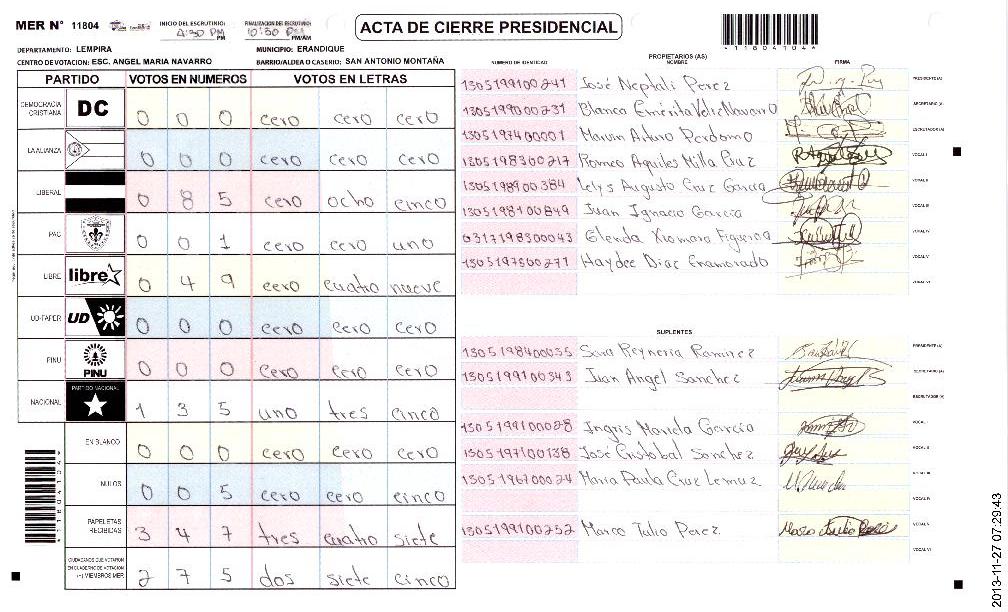 MER N° 11804
INICIO DEL ESCRUTINIO: 4:30 PM PM
FINALIZACION DEL ESCRUTINIO: 10:30 PM PM/AM
ACTA DE CIERRE PRESIDENCIAL
*1180404*
DEPARTAMENTO: LEMPIRA
MUNICIPIO: ERANDIQUE
CENTRO DE VOTACION: ESC. ANGEL MARIA NAVARRO
BARRIO/ALDEA O CASERIO: SAN ANTONIO MONTAÑA
PARTIDO VOTOS EN NUMEROS VOTOS EN LETRAS
DEMOCRACIA CRISTIANA DC 0 0 0 cero cero cero
LA ALIANZA 0 0 0 cero cero cero
LIBERAL 0 8 5 cero ocho cinco
PAC 0 0 1 cero cero uno
LIBRE libre 0 4 9 cero cuatro nueve
UD-FAPER UD 0 0 0 cero cero cero
PINU PINU 0 0 0 cero cero cero
NACIONAL PARTIDO NACIONAL 1 3 5 uno tres cinco
EN BLANCO 0 0 0 cero cero cero
NULOS 0 0 5 cero cero cinco
PAPELETAS RECIBIDAS 3 4 7 tres cuatro siete
CIUDADANOS QUE VOTARON EN CUADERNO DE VOTACION (+) MIEMBROS MER 2 7 5 dos siete cinco
PROPIETARIOS (AS)
NUMERO DE IDENTIDAD NOMBRE FIRMA
1305199100241 José Neptali Perez PRESIDENTE(A)
1305199000231 Blanca Emérita Veliz Navarro SECRETARIO (A)
1305197400001 Marvin Arturo Perdomo ESCRUTADOR (A)
1305198300217 Romeo Aquiles Milla Cruz VOCAL I
1305198900384 Lelys Augusto Cruz Garcia VOCAL II
1305198100849 Juan Ignacio Garcia VOCAL III
0317198300043 Glenda Xiomara Figueroa VOCAL IV
1305197500271 Haydee Diaz Enamorado VOCAL V
VOCAL VI
SUPLENTES
1305198400055 Sara Reyneria Ramirez PRESIDENTE (A)
1305199100343 Juan Angel Sanchez SECRETARIO (A)
ESCRUTADOR (A)
1305199100028 Ingris Mariela Garcia VOCAL I
1305197100138 José Cristobal Sanchez VOCAL II
1305196700024 Maria Paula Cruz Lemuz VOCAL III
VOCAL IV
1305199100252 Marco Tulio Perez VOCAL V
VOCAL VI
*1180404*
2013-11-27 07:29:43